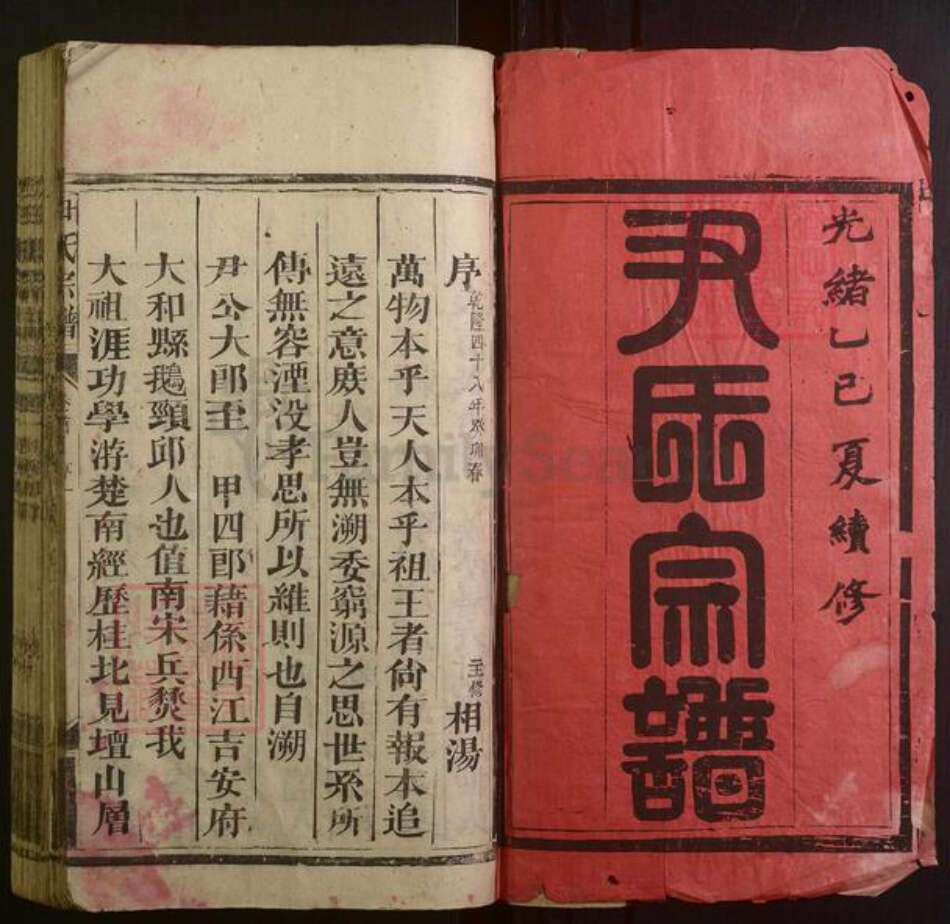 光緒乙巳夏續修
尹氏宗譜
序 乾隆四十八年癸卯春 主修 相湯
萬物本乎天人本乎祖王者尙有報本追
遠之意庶人豈無溯委窮源之思世系所
傳無容湮没孝思所以維則也自溯
尹公大郎至 甲四郎藉係西江吉安府
大和縣鵝頸邱人也值南宋兵燹我
大祖涯功學游楚南經歷桂北見壇山層
尹氏宗譜
FamilySearch